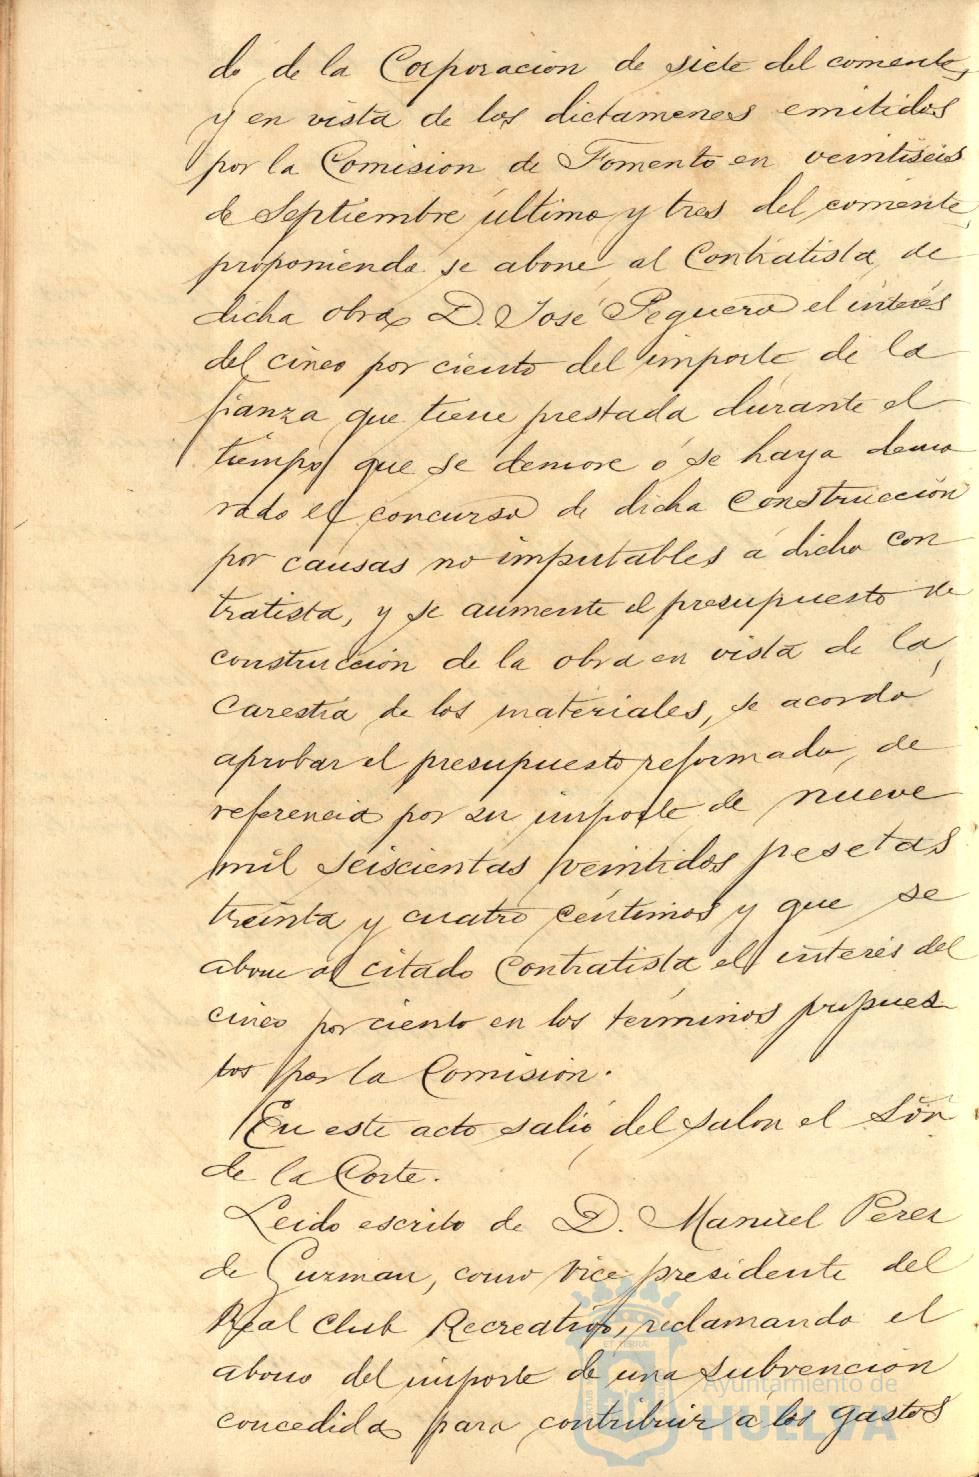 do de la Corporacion de siete del corriente,
y en vista de los dictamenes emitidos
por la Comision de Fomento en veintiseis
de Septiembre último y tres del corriente,
proponiendo se abone al Contratista de
dicha obra D. José Peguero el interés
del cinco por ciento del importe de la
fianza que tiene prestada durante el
tiempo que se demore ó se haya demo
rado el concurso de dicha Construcción
por causas no imputables á dicho con
tratista, y se aumente el presupuesto de
construcción de la obra en vista de la
Carestía de los materiales, se acordó
aprobar el presupuesto reformado, de
referencia por su importe de nueve
mil seiscientas veintidos pesetas
treinta y cuatro céntimos y que se
abone al citado Contratista el interés del
cinco por ciento en los términos propues
tos por la Comision.
En este acto salió del salon el Sör
de la Corte.
Leido escrito de D. Manuel Perez
de Guzman, como Vice presidente del
Real Club Recreativo, reclamando el
abono del importe de una subvención
concedida para contribuir á los gastos
Ayuntamiento de
HUELVA